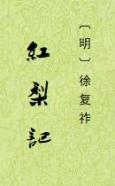 〔明〕徐复祚
紅梨記